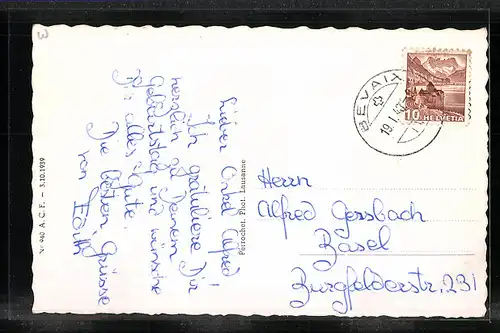 Lieber Onkel Alfred!
Ich gratuliere Dir
herzlich zu Deinem
Geburtstag und wünsche
Dir alles Gute.
Die besten Grüsse
von Edith
Nº 940 A. C. F. – 3.10.1939
Perrochet. Phot. Lausanne
BEVAIX
19.I.
10
HELVETIA
Herrn
Alfred Gersbach
Basel
Burgfelderstr. 231
3